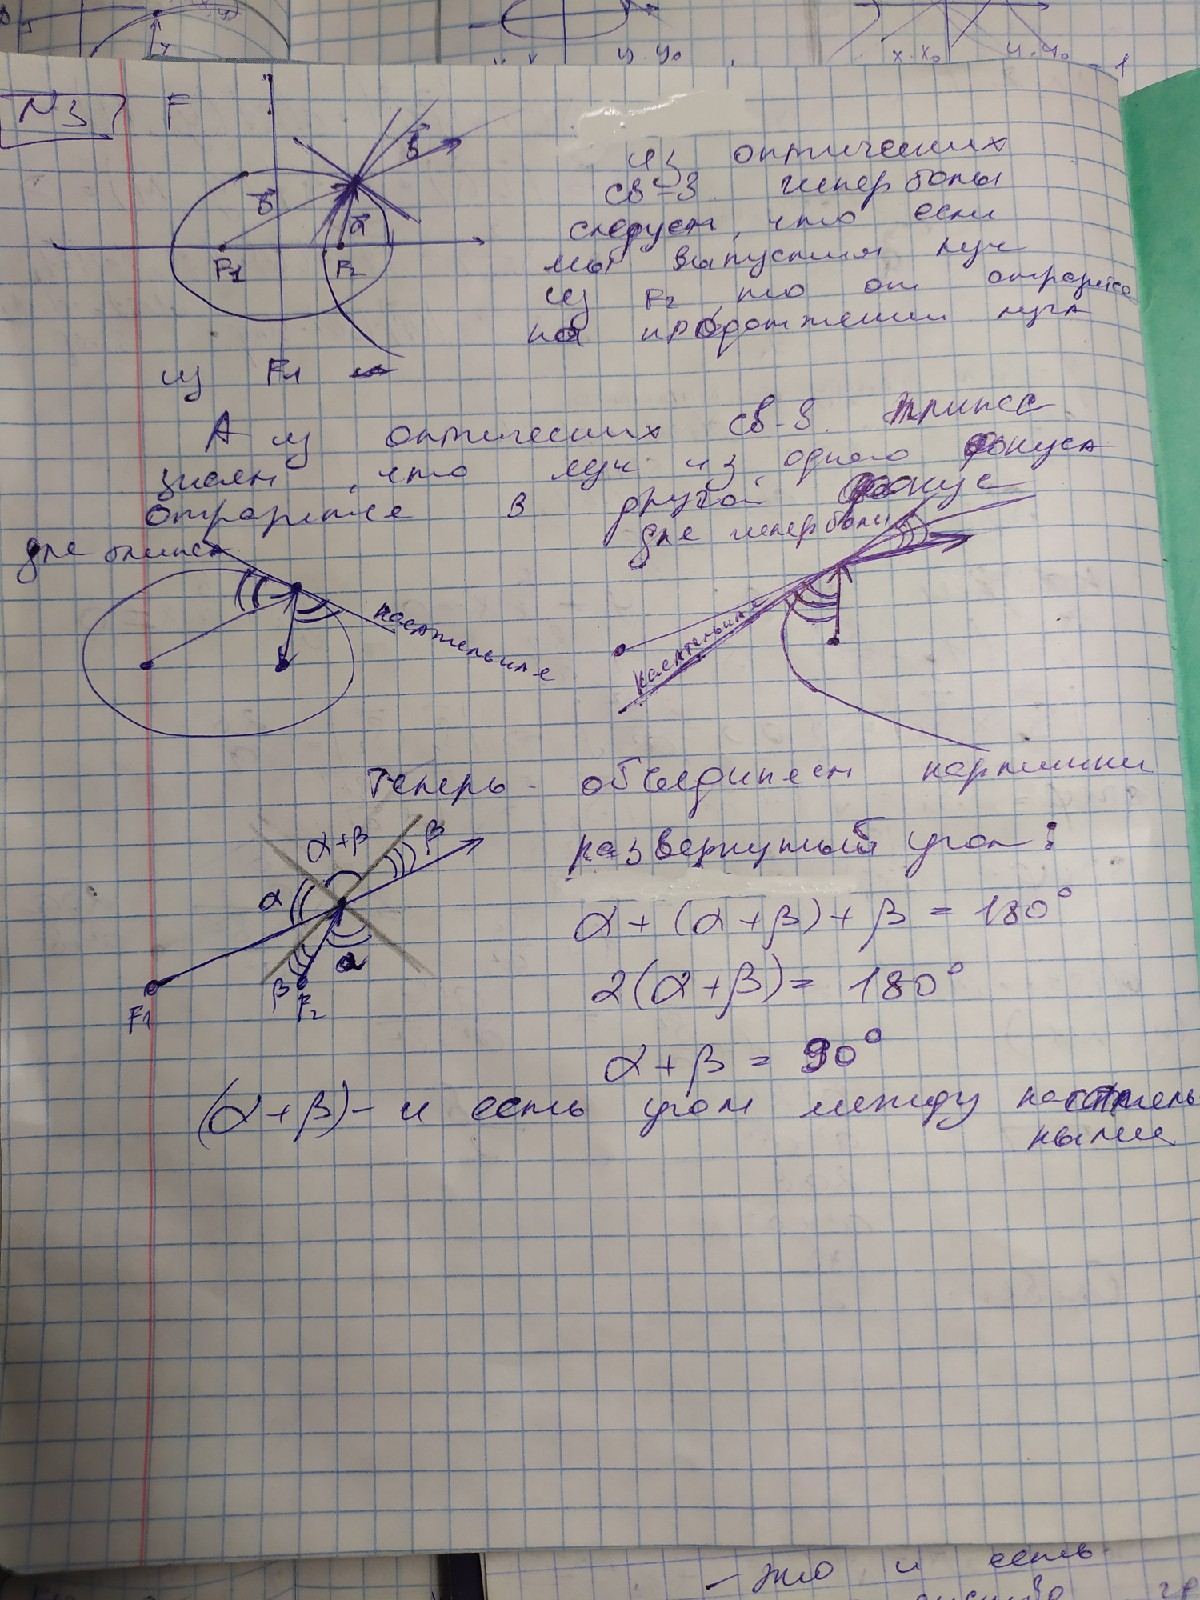 x·x₀
y·y₀
= 1
N3
F
b
b
a
F₁
F₂
из оптических
св-в гиперболы
следует, что если
мы выпустим луч
из F₂, то он отразится
на продолжении луча
из F₁
А из оптических св-в эллипса
знаем, что луч из одного фокуса
отразится в другой фокус
для эллипса
для гиперболы
касательная
касательная
Теперь объединяем картинки
развернутый угол:
α+β
β
α
α
β
F₁
F₂
α + (α + β) + β = 180°
2(α + β) = 180°
α + β = 90°
(α + β) - и есть угол между касатель
ными
- это и есть